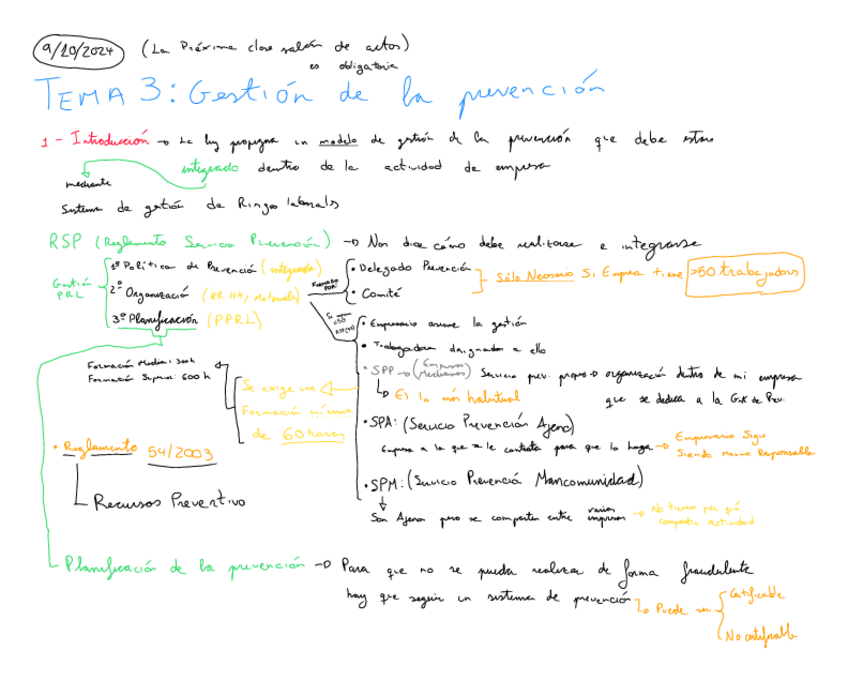 9/10/2024 (La Próxima clase salón de actos)
es obligatoria
TEMA 3: Gestión de la prevención
1 - Introducción → La ley propugna un modelo de gestión de la prevención que debe estar
integrado dentro de la actividad de empresa
mediante
Sistema de gestión de Riesgos laborals
RSP (Reglamento Servicio Prevención) → Nos dice cómo debe realizarse e integrarse
Gestión PRL
1º Política de Prevención (integrada)
2º Organización (RRHH/Materials)
3º Planificación (PPRL)
Formado por:
• Delegado Prevención
• Comité
Sólo Necesario Si Empresa tiene >50 trabajadores
• Empresario asume la gestión
• Trabajadores designados a ello
• SPP → (Empresas Medianas) Servicio prev. propio → organización dentro de mi empresa
que se dedica a la Gest de Prev.
↳ Es lo más habitual
• SPA: (Servicio Prevención Ajeno)
Empresa a la que se le contrata para que lo haga → Empresario Sigue
Siendo Responsable
• SPM: (Servicio Prevenció Mancomunidad)
Son Ajenos pero se comparten entre varias empresas → No tienen por qué
compartir actividad
Formación Media: 300h
Formación Superior: 600h
Se exige una
Formación mínima
de 60 horas
• Reglamento 54/2003
Recursos Preventivo
Planificación de la prevención → Para que no se pueda realizar de forma fraudulenta
hay que seguir un sistema de prevención
↳ Puede ser
Certificable
No certificable